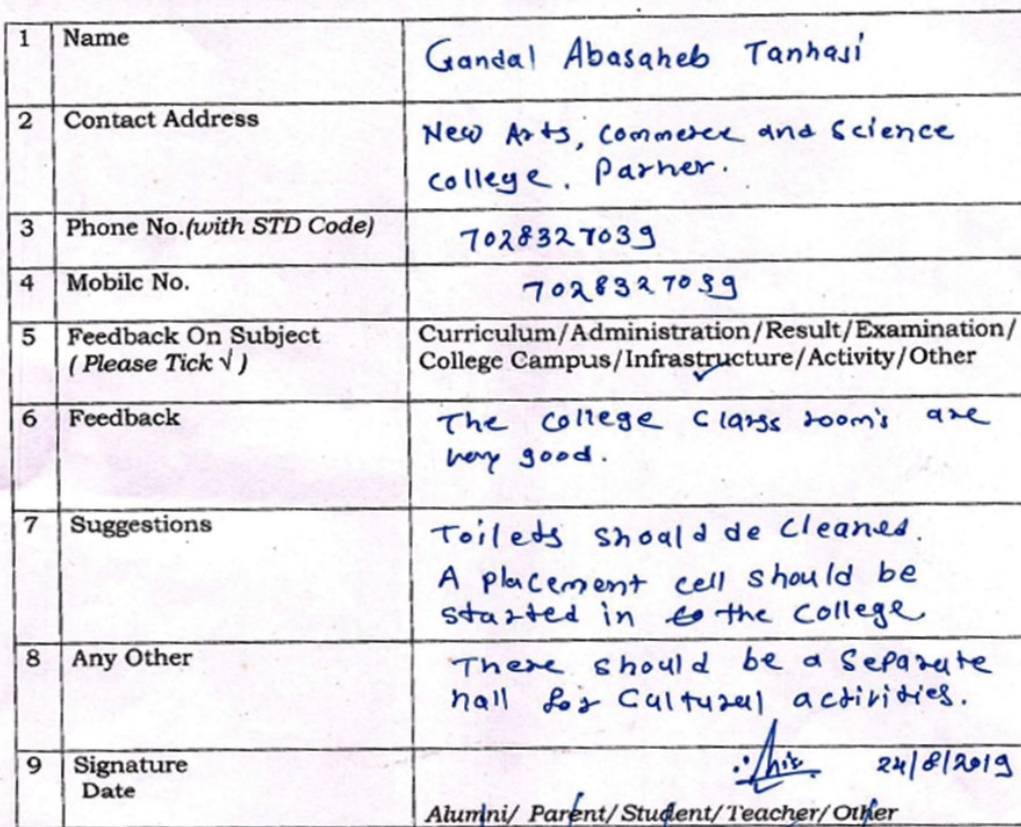 1 Name Gandal Abasaheb Tanhaji
2 Contact Address New Arts, Commerce and Science
College. Parner.
3 Phone No.(with STD Code) 7028327039
4 Mobile No. 7028327039
5 Feedback On Subject Curriculum/Administration/Result/Examination/
( Please Tick √ ) College Campus/Infrastructure/Activity/Other
✓
6 Feedback The College Class room's are
very good.
7 Suggestions Toilets shoald de Cleaned.
A placement cell should be
started in the College
8 Any Other There should be a Separate
hall for Caltural activities.
9 Signature 24/8/2019
Date
Alumni/ Parent/Student/Teacher/Other